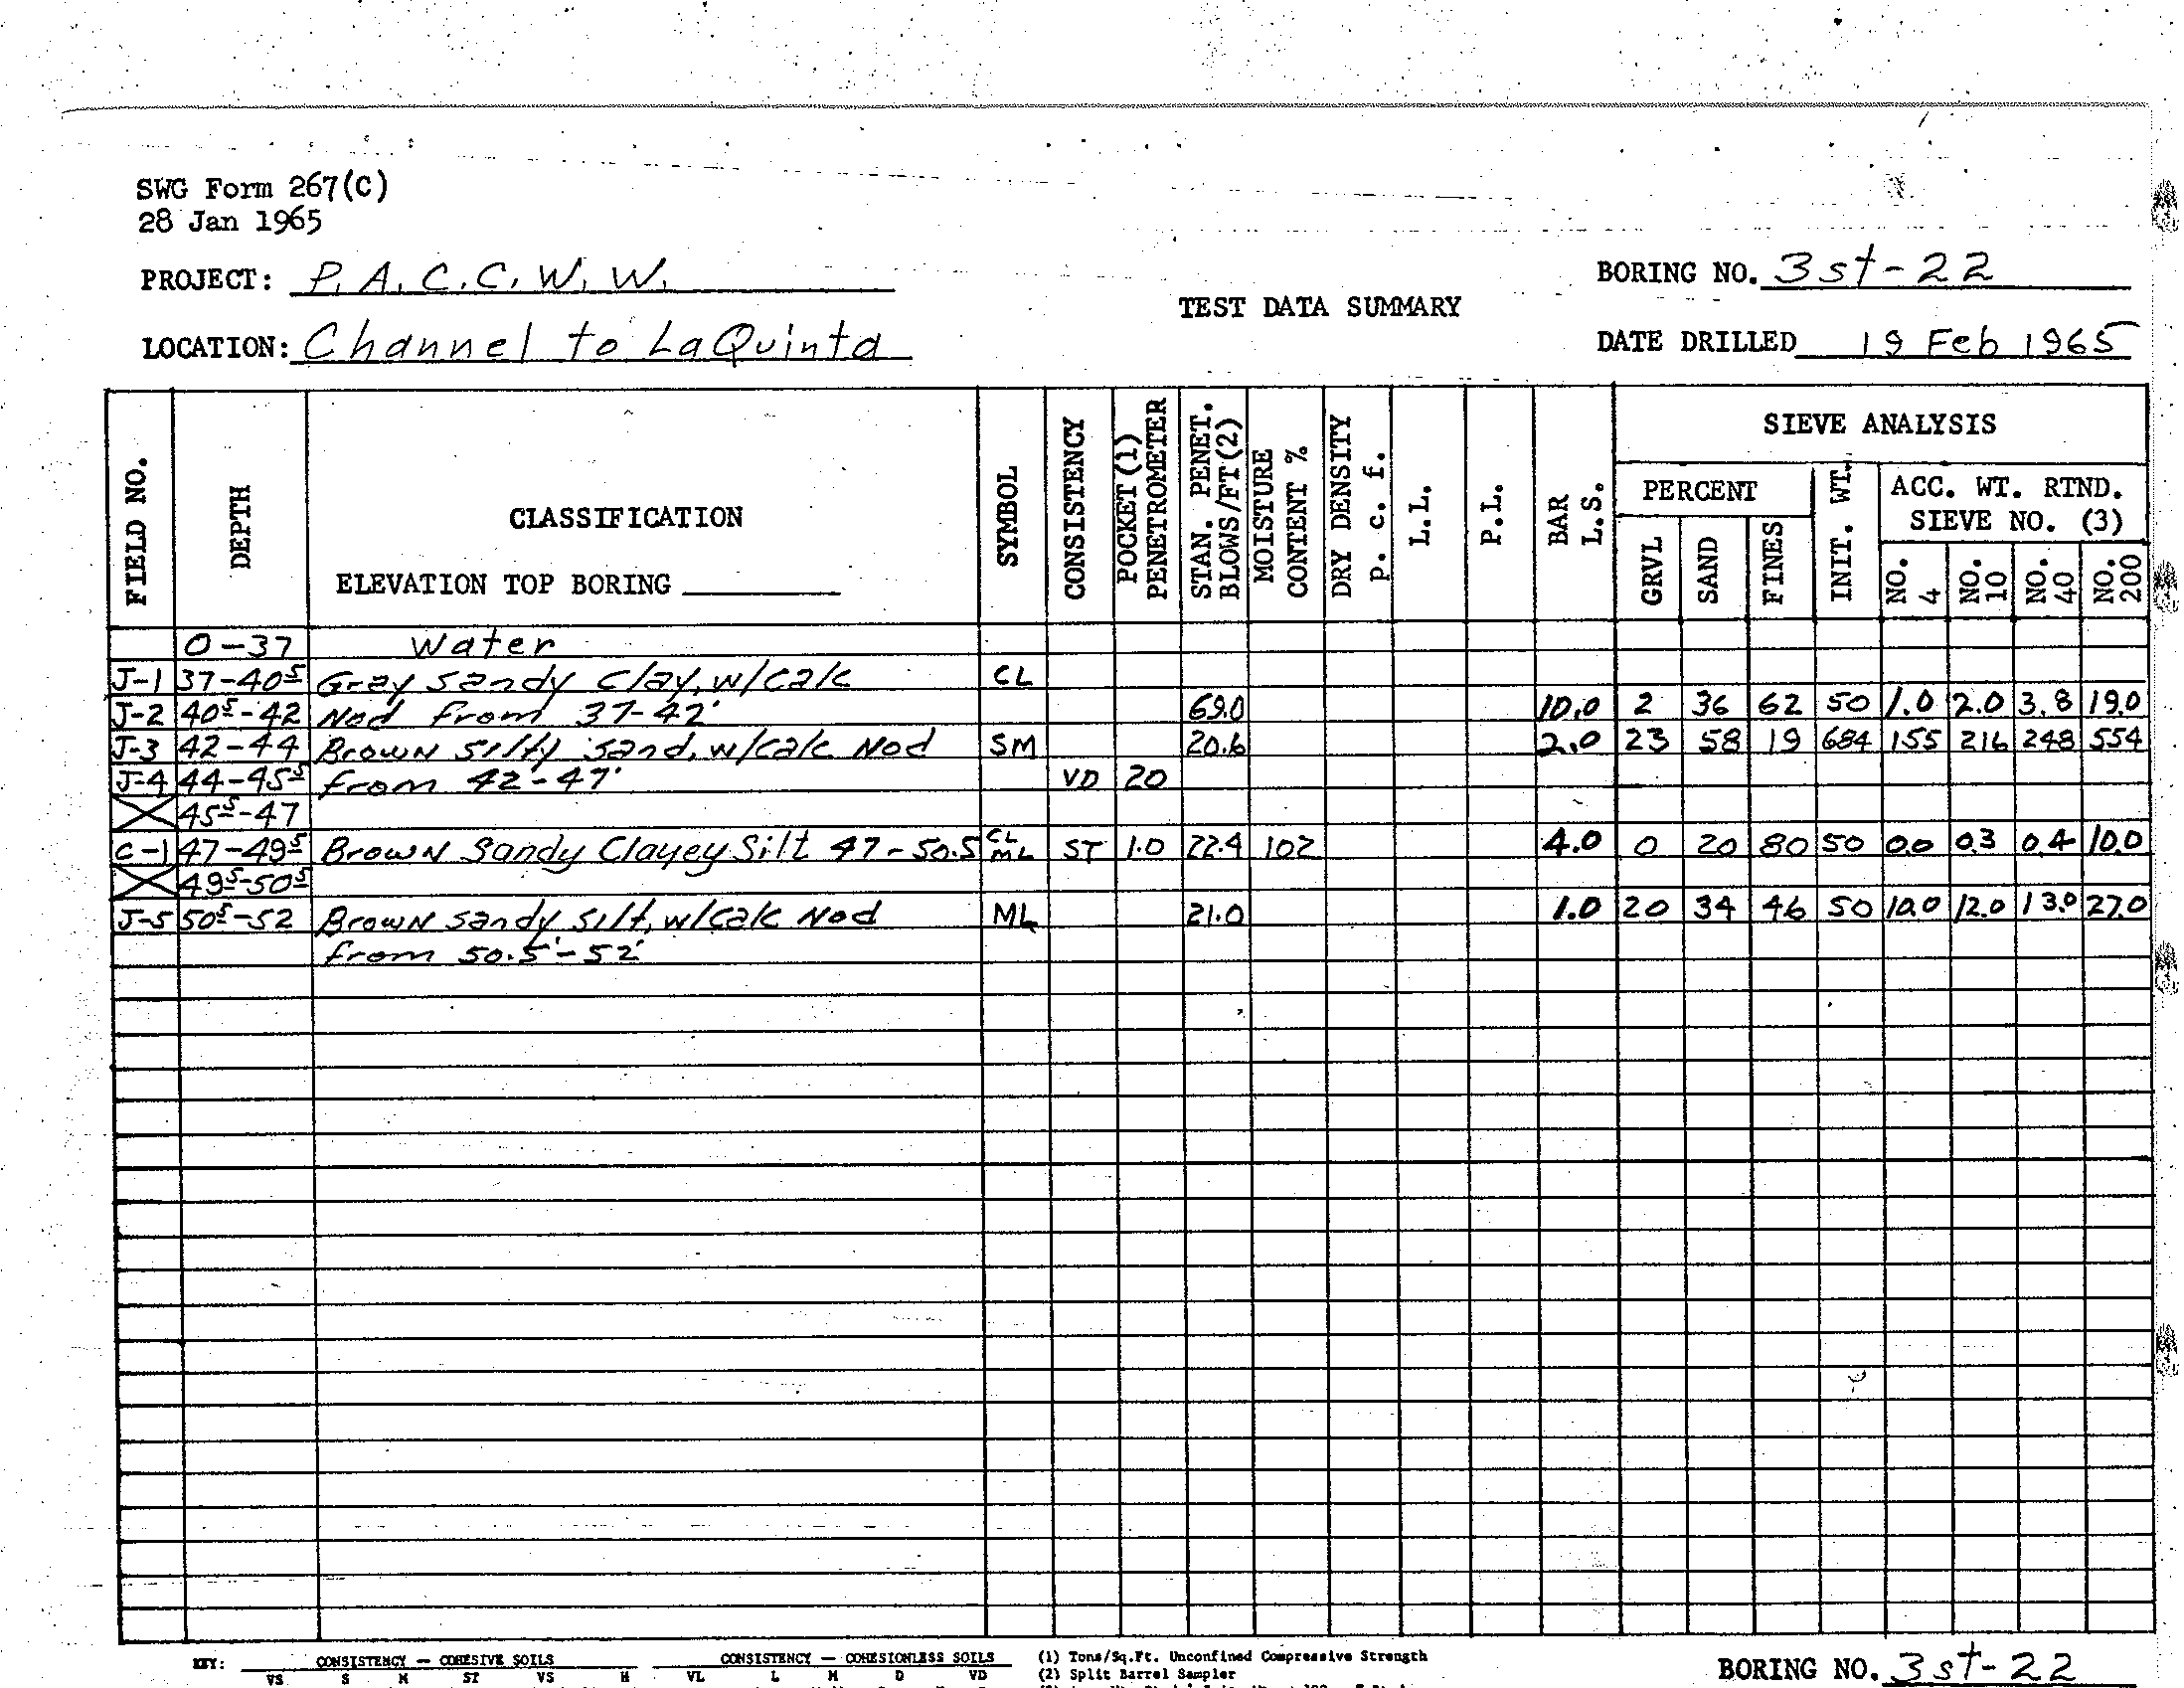 SWG Form 267(C)
28 Jan 1965
PROJECT: P. A. C. C. W. W.
BORING NO. 3st-22
TEST DATA SUMMARY
LOCATION: Channel to LaQuinta
DATE DRILLED 19 Feb 1965
FIELD NO. DEPTH CLASSIFICATION SYMBOL CONSISTENCY POCKET (1) PENETROMETER STAN. PENET. BLOWS/FT (2) MOISTURE CONTENT % DRY DENSITY p. c. f. L.L. P.L. BAR L.S. SIEVE ANALYSIS
ELEVATION TOP BORING
PERCENT INIT. WT. ACC. WT. RTND.
SIEVE NO. (3)
GRVL SAND FINES NO. 4 NO. 10 NO. 40 NO. 200
0-37 Water
J-1 37-40⁵ Gray Sandy Clay, w/calc CL
J-2 40⁵-42 Nod from 37-42' 69.0 10.0 2 36 62 50 1.0 2.0 3.8 19.0
J-3 42-44 Brown Silty Sand, w/calc Nod SM 20.6 2.0 23 58 19 684 155 216 248 554
J-4 44-45⁵ from 42'-47' VD 20
45⁵-47
C-1 47-49⁵ Brown Sandy Clayey Silt 47-50.5 CL ML ST 1.0 22.4 102 4.0 0 20 80 50 0.0 0.3 0.4 10.0
49⁵-50⁵
J-5 50⁵-52 Brown sandy silt, w/calc Nod ML 21.0 1.0 20 34 46 50 10.0 12.0 13.0 27.0
from 50.5'-52'
KEY: CONSISTENCY - COHESIVE SOILS CONSISTENCY - COHESIONLESS SOILS (1) Tons/Sq.Ft. Unconfined Compressive Strength
VS S M ST VS H VL L M D VD (2) Split Barrel Sampler
BORING NO. 3st-22